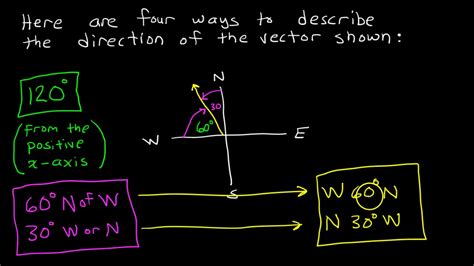 Here are four ways to describe
the direction of the vector shown:
120°
(from the
positive
x-axis)
N
30
60°
W
E
S
60° N of W
30° W or N
W 60° N
N 30° W